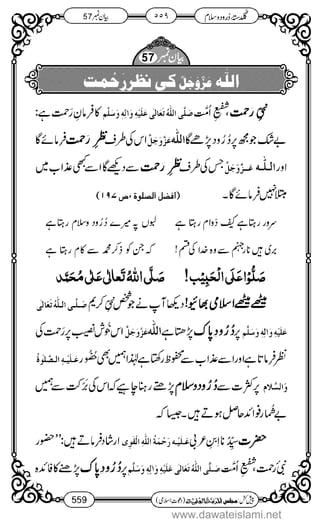 گلدستۂ دُرُود و سلام
۵۵۹
بیان نمبر 57
بیان نمبر 57
اللہ عَزَّوَجَلَّ کی نظرِ رَحْمت
نبیِّ رَحمت، شفیعِ اُمَّت صَلَّی اللہُ تَعَالٰی عَلَیْہِ وَاٰلِہٖ وَسَلَّم کا فرمان ہے:
بے شک جو مجھ پر دُرُود پڑھے گا اللہ عَزَّوَجَلَّ اس کی طرف نظرِ رَحمت فرمائے گا
اور اللہ عَزَّوَجَلَّ جس کی طرف نظرِ رَحمت سے دیکھے گا اسے کبھی عذاب میں
مبتلا نہیں فرمائے گا۔ (افضل الصلوۃ ، ص ۱۹۷)
سرور رہتا ہے کیف دوام رہتا ہے لبوں پہ میرے دُرُود و سلام رہتا ہے
بری ہیں نار جہنم سے وہ خدا کی قسم! کہ جن کو ذکرِ محمد سے کام رہتا ہے
صَلُّوْا عَلَی الْحَبِیْب! صَلَّی اللہُ تَعَالٰی عَلٰی مُحَمَّد
میٹھے میٹھے اسلامی بھائیو! دیکھا آپ نے جو شخص نبیِّ کریم صَلَّی اللہُ تَعَالٰی
عَلَیْہِ وَاٰلِہٖ وَسَلَّم پر دُرُودِ پاک پڑھتا ہے اللہ عَزَّوَجَلَّ اُس خوش نصیب پر رَحمت کی
نظر فرماتا ہے اور اسے عذاب سے محفوظ رکھتا ہے لہٰذا ہمیں بھی حُضُور عَلَیْہِ الصَّلٰوۃُ
وَالسَّلَام پر کثرت سے دُرُود و سلام پڑھتے رہنا چاہیے کہ اس کی بَرَکت سے ہمیں
بے شمار فوائد حاصل ہوتے ہیں۔ چنانچہ
حضرت سَیِّدُنا ابنِ عربی عَلَیْہِ رَحْمَۃُ اللہِ الْقَوِی ارشاد فرماتے ہیں: ’’حضور
نبیِّ رَحمت، شفیعِ اُمَّت صَلَّی اللہُ تَعَالٰی عَلَیْہِ وَاٰلِہٖ وَسَلَّم پر دُرُودِ پاک پڑھنے کا فائدہ
559
پیش کش: مجلس المدینۃ العلمیۃ (دعوتِ اسلامی)
www.dawateislami.net